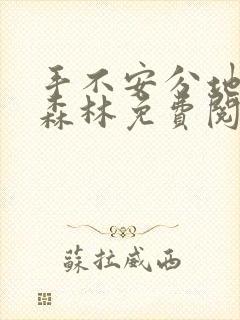 手不安分地
森林免費閱
蘇拉威西